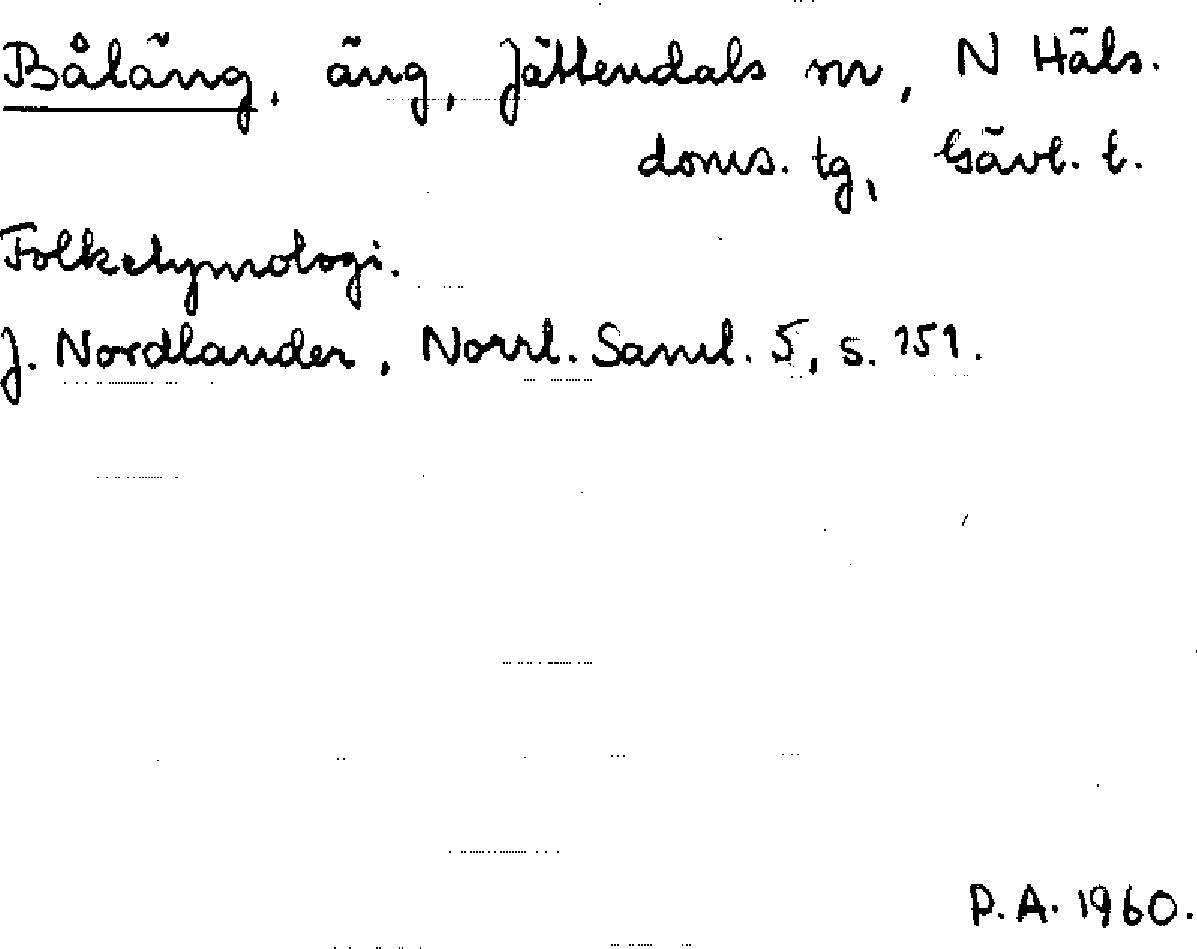 Båläng, äng, Jättendals sn, N Häls.
doms. tg, Gävl. l.
Folketymologi.
J. Nordlander, Norrl. Saml. 5, s. 151.
P. A. 1960.